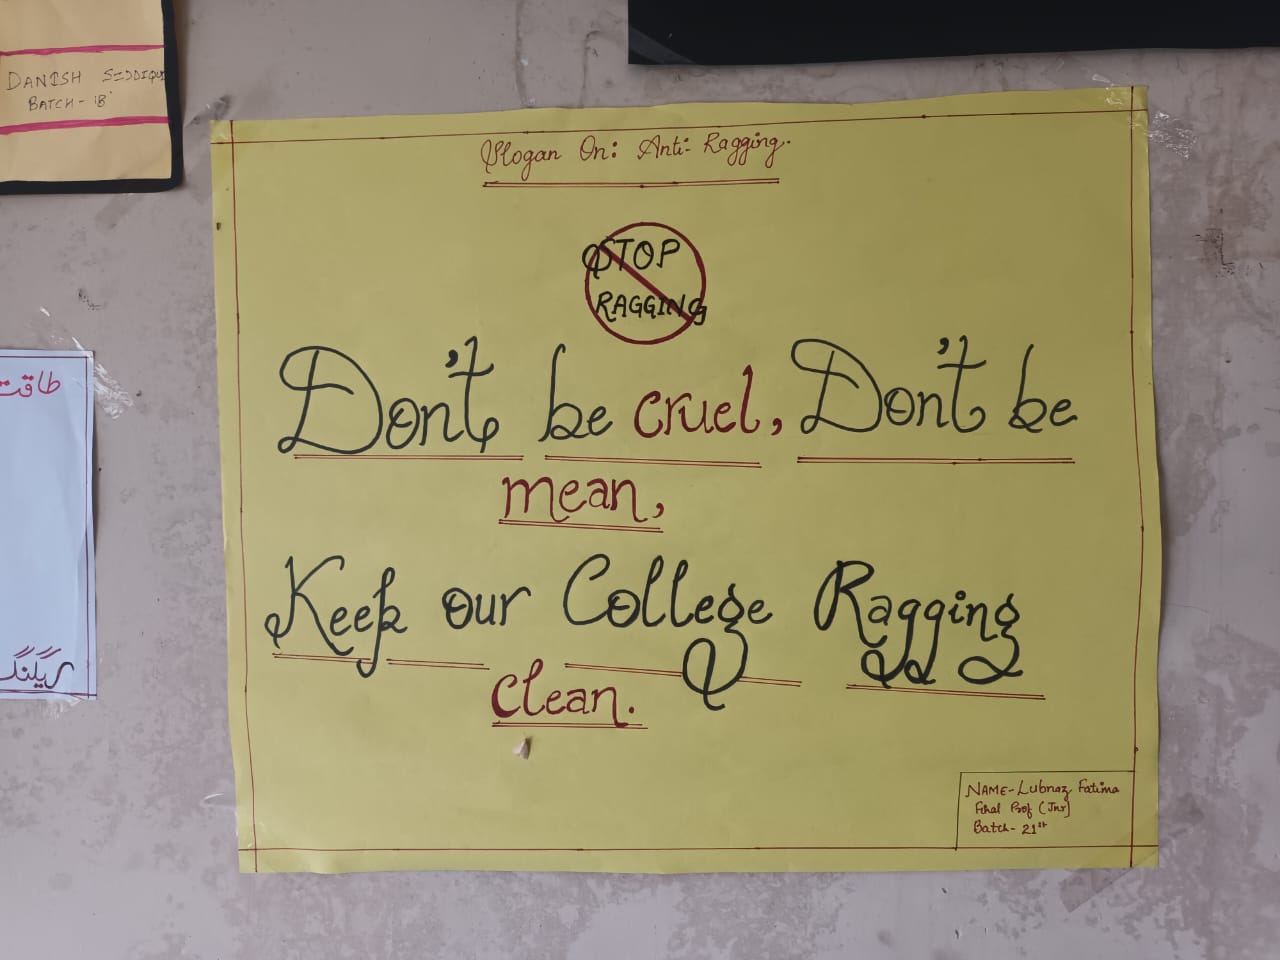 DANISH SIDDIQUI
BATCH - 18
Slogan On: Anti- Ragging.
STOP
RAGGING
Don't be cruel, Don't be
mean,
Keep our College Ragging
clean.
NAME- Lubnaz Fatima
Final Prof (Jnr)
Batch- 21st
طاقت
ریگنگ